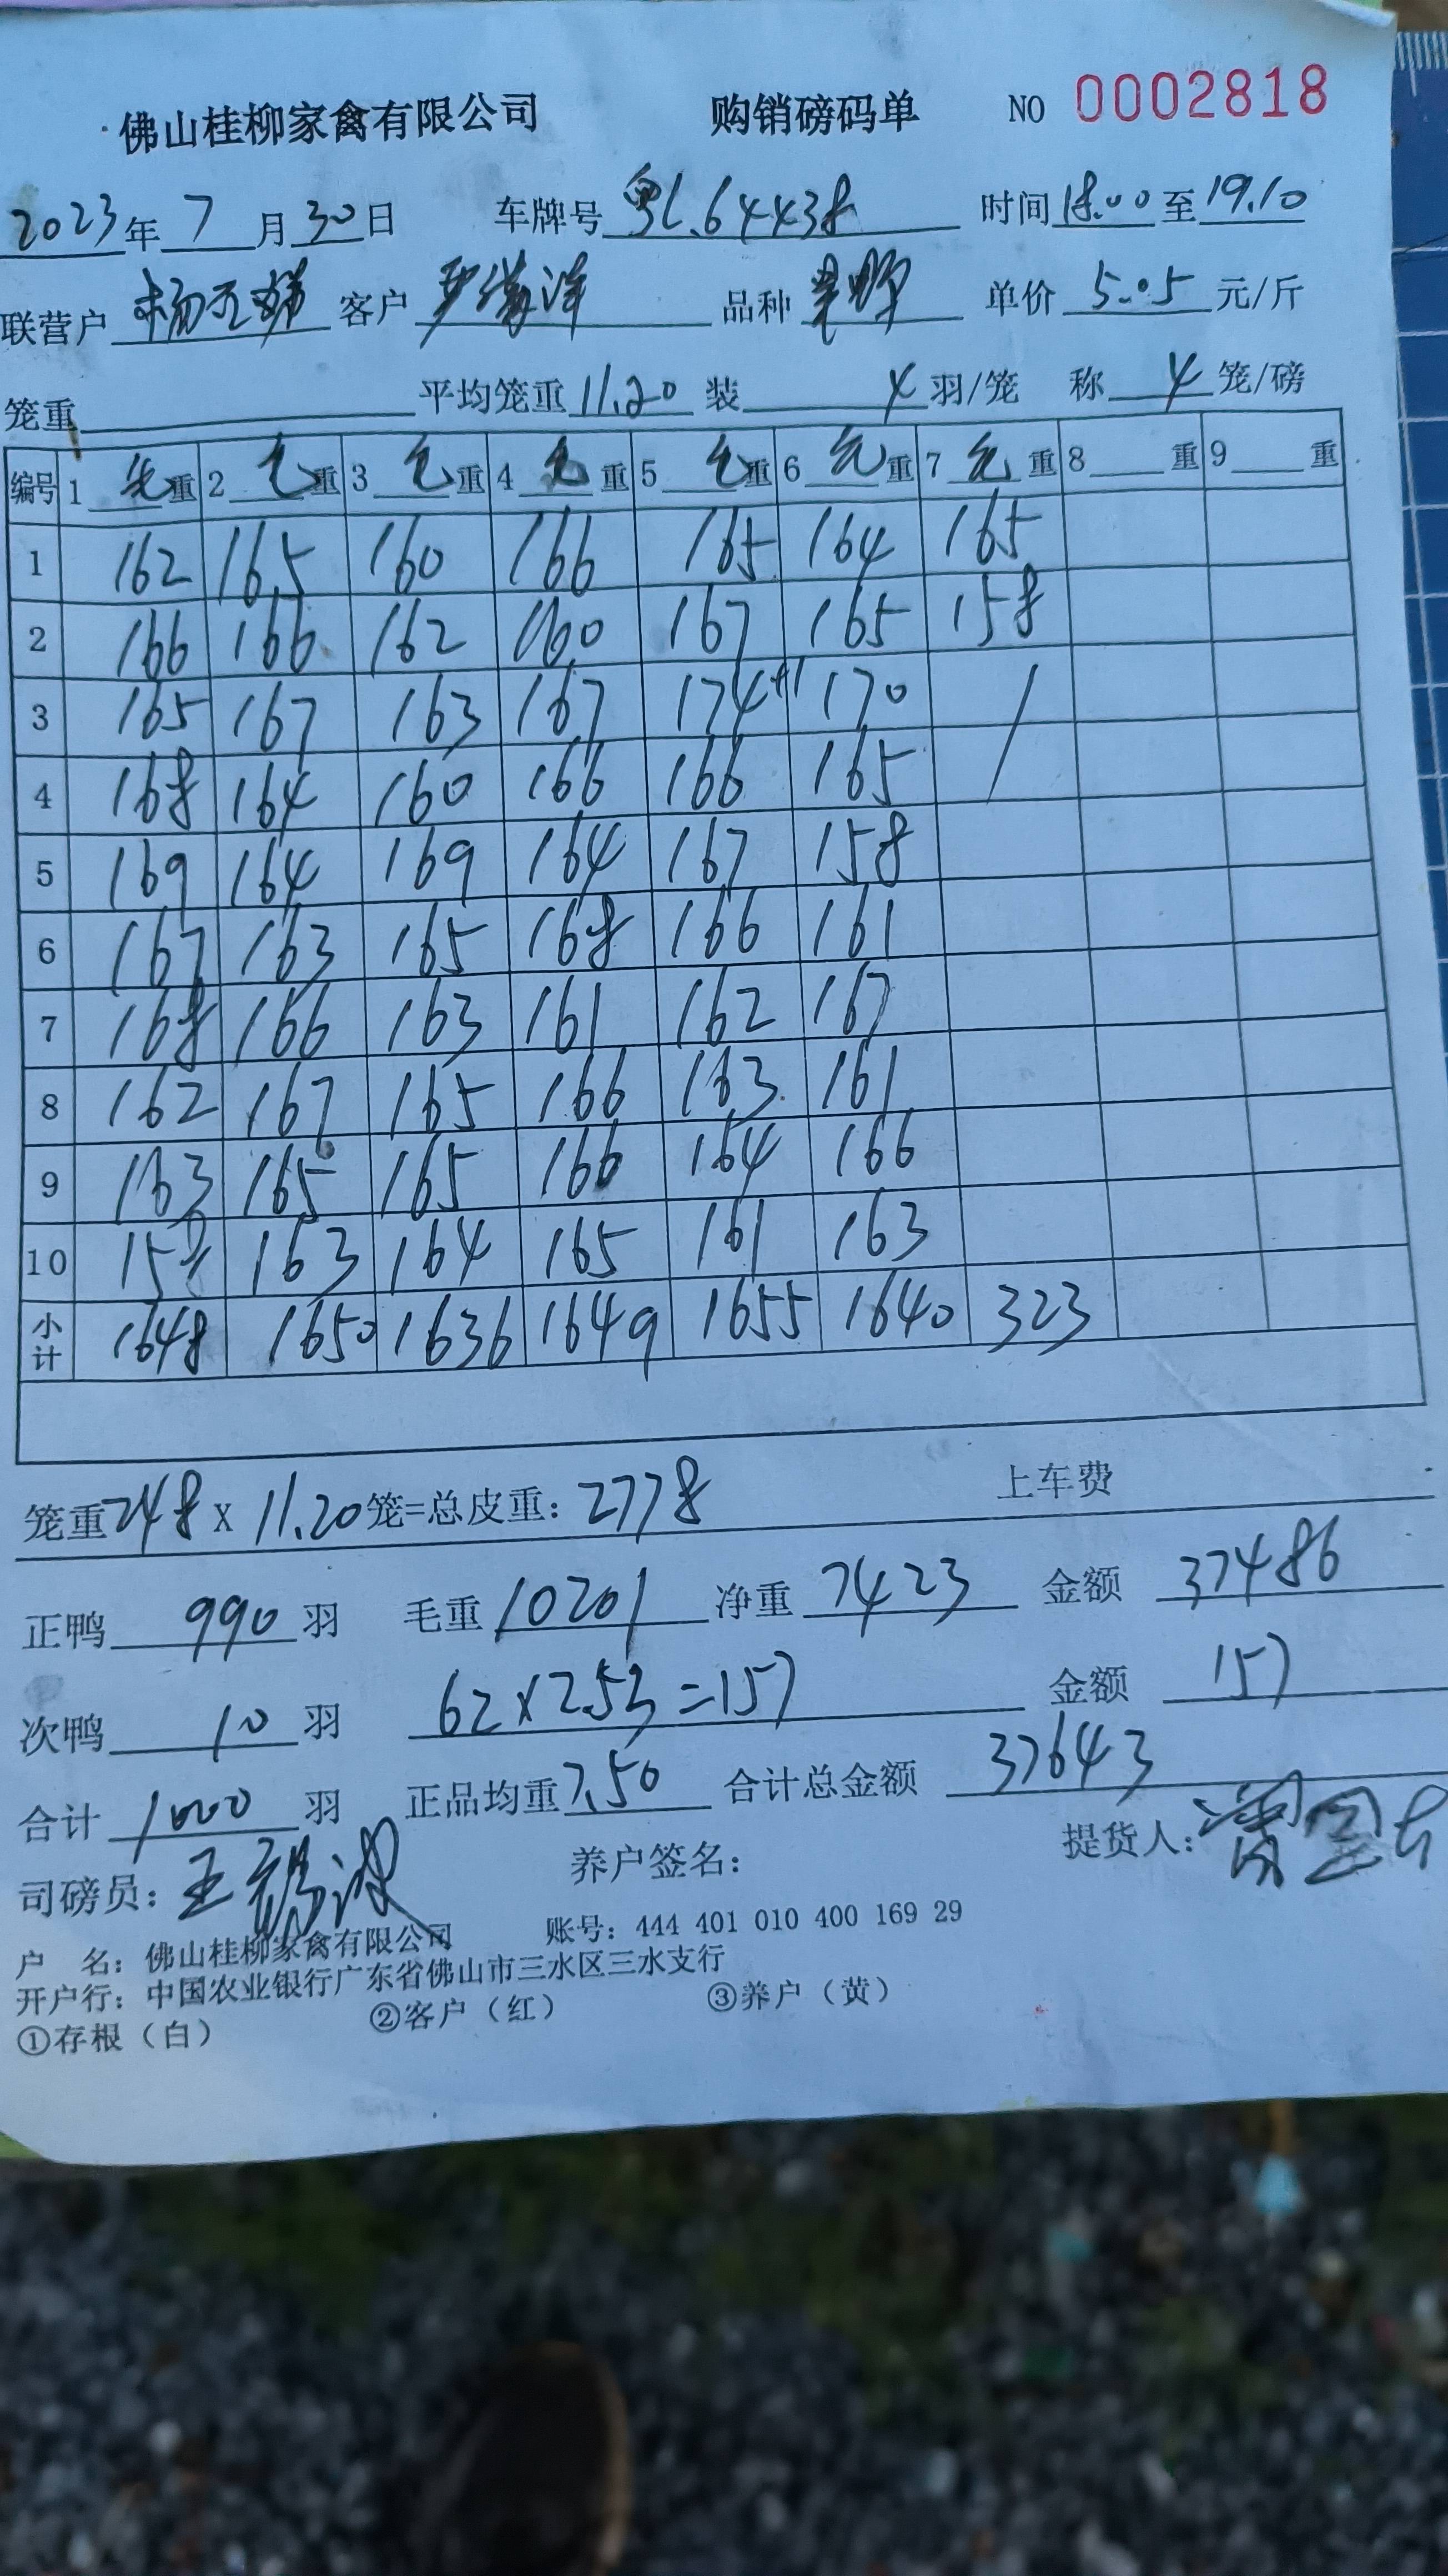 佛山桂柳家禽有限公司 购销磅码单 NO 0002818
2023年7月30日 车牌号 粤L.64438 时间18.00至19.10
联营户 杨 客户 品种 单价 5.05 元/斤
笼重 平均笼重11.20 装 4 羽/笼 称 4 笼/磅
编号 1 毛重 2 毛重 3 毛重 4 毛重 5 毛重 6 毛重 7 毛重 8 重 9 重
1 162 165 160 166 165 164 165
2 166 166 162 160 167 165 158
3 165 167 163 167 174+1 170 /
4 168 164 160 166 166 165
5 169 164 169 164 167 158
6 167 163 165 168 166 161
7 168 166 163 161 162 167
8 162 167 165 166 163 161
9 163 165 165 166 164 166
10 158 163 164 165 161 163
小计 1648 1650 1636 1649 1655 1640 323
笼重248 X 11.20笼=总皮重：2778 上车费
正鸭 990 羽 毛重 10201 净重 7423 金额 37486
次鸭 10 羽 62×2.53=157 金额 157
合计 1000 羽 正品均重7.50 合计总金额 37643
司磅员：王 养户签名： 提货人：
户 名：佛山桂柳家禽有限公司 账号：444 401 010 400 169 29
开户行：中国农业银行广东省佛山市三水区三水支行
①存根（白） ②客户（红） ③养户（黄）